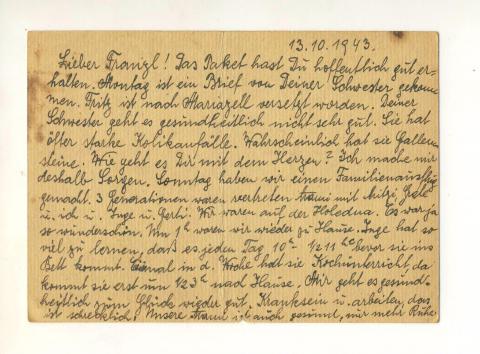 13.10.1943.
Lieber Franzl! Das Paket hast Du hoffentlich gut er-
halten. Montag ist ein Brief von Deiner Schwester gekom-
men. Fritz ist nach Mariazell versetzt worden. Deiner
Schwester geht es gesundheitlich nicht sehr gut. Sie hat
öfter starke Kolikanfälle. Wahrscheinlich hat sie Gallen-
steine. Wie geht es Dir mit dem Herzen? Ich mache mir
deshalb Sorgen. Sonntag haben wir einen Familienausflug
gemacht. 3 Generationen waren vertreten mit Mitzi, Grete
u. ich u. Inge u. Gerti. Wir waren auf der Es war ja
so wunderschön. Um 1h waren wir wieder zu Hause. Inge hat so
viel zu lernen, dass es jeden Tag 10h - 1211h bevor sie ins
Bett kommt. Einmal in d. Woche hat sie Kochunterricht, da
kommt sie erst um 123h nach Hause. Mir geht es gesund-
heitlich zum Glück wieder gut. Kranksein u. arbeiten, das
ist schrecklich. Unsere ist auch gesund, nur mehr Ruhe